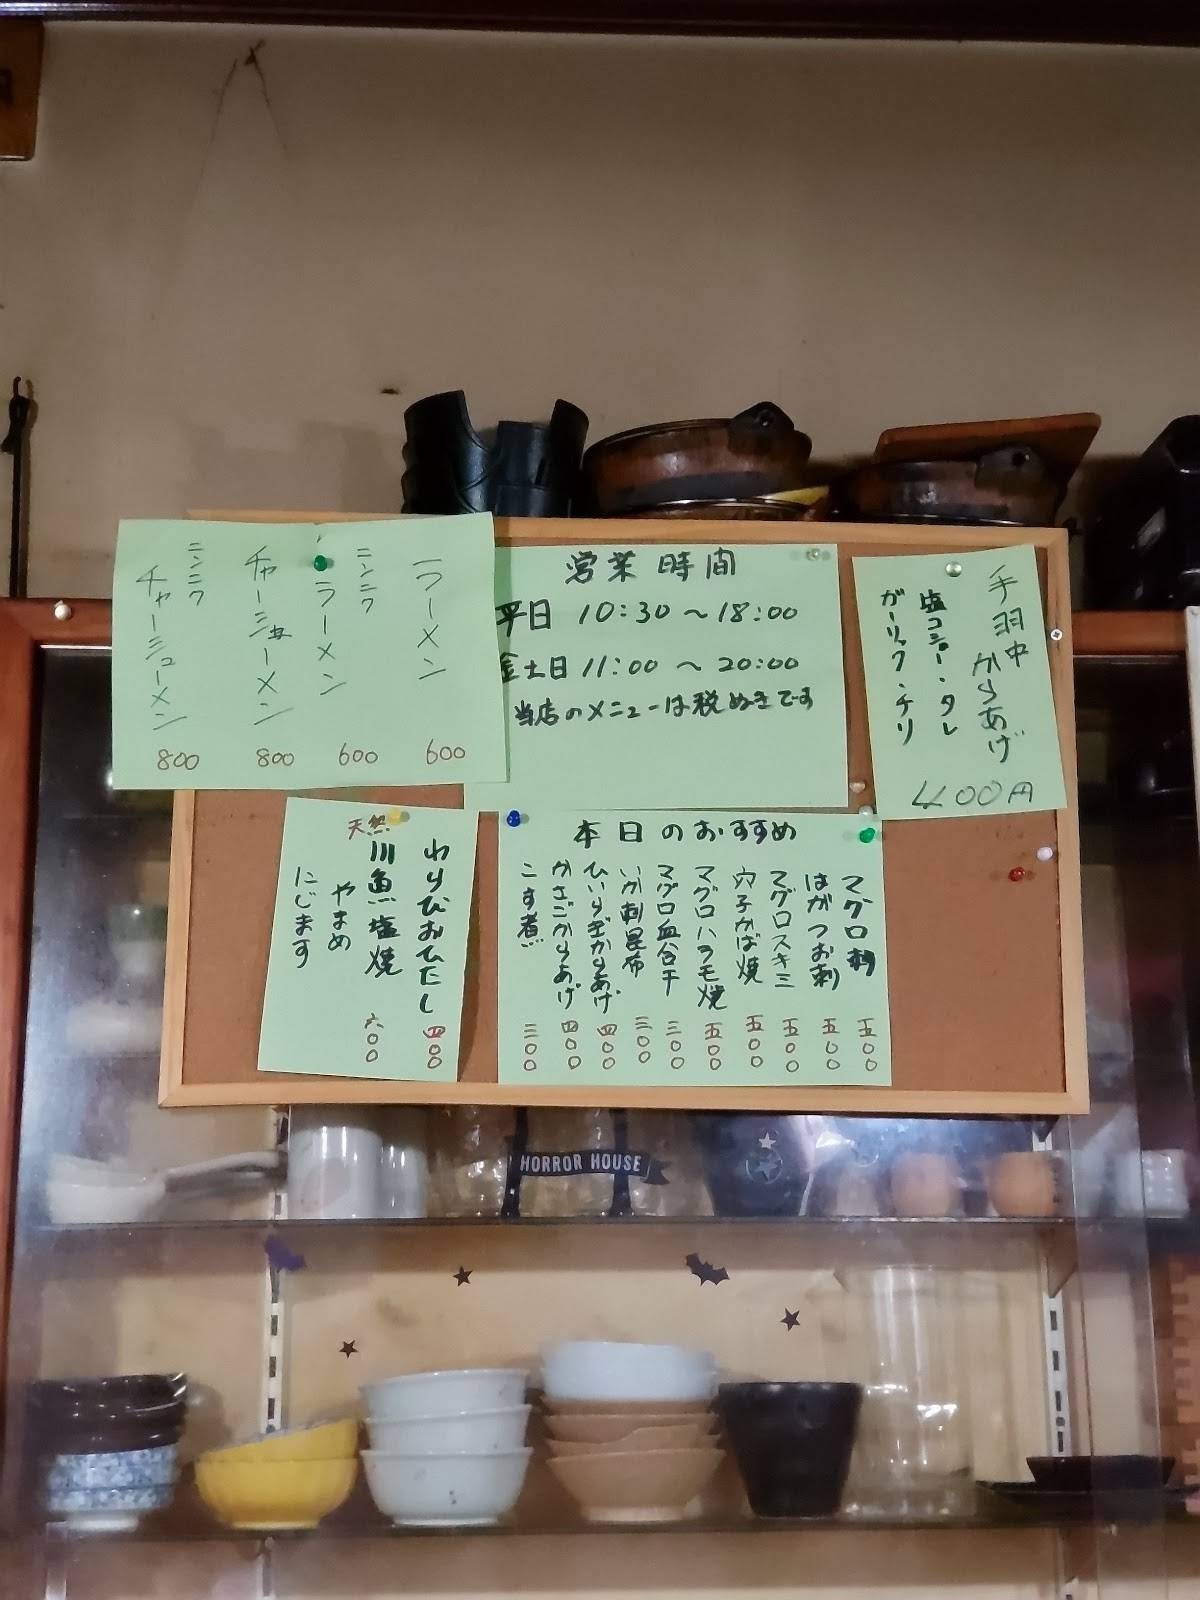 ラーメン
600
ニンニク
ラーメン
600
チャーシューメン
800
ニンニク
チャーシューメン
800
営業時間
平日 10:30〜18:00
金土日 11:00〜20:00
当店のメニューは税ぬきです
手羽中
からあげ
塩コショー・タレ
ガーリック・チリ
400円
わらびおひたし 四〇〇
天然
川魚塩焼 六〇〇
やまめ
にじます
本日のおすすめ
マグロ刺 五〇〇
はがつお刺 五〇〇
マグロスキミ 五〇〇
穴子かば焼 五〇〇
マグロハラモ焼 五〇〇
マグロ血合干 三〇〇
いか刺昆布 三〇〇
ひいらぎからあげ 四〇〇
かさごからあげ 四〇〇
こす煮 三〇〇
HORROR HOUSE